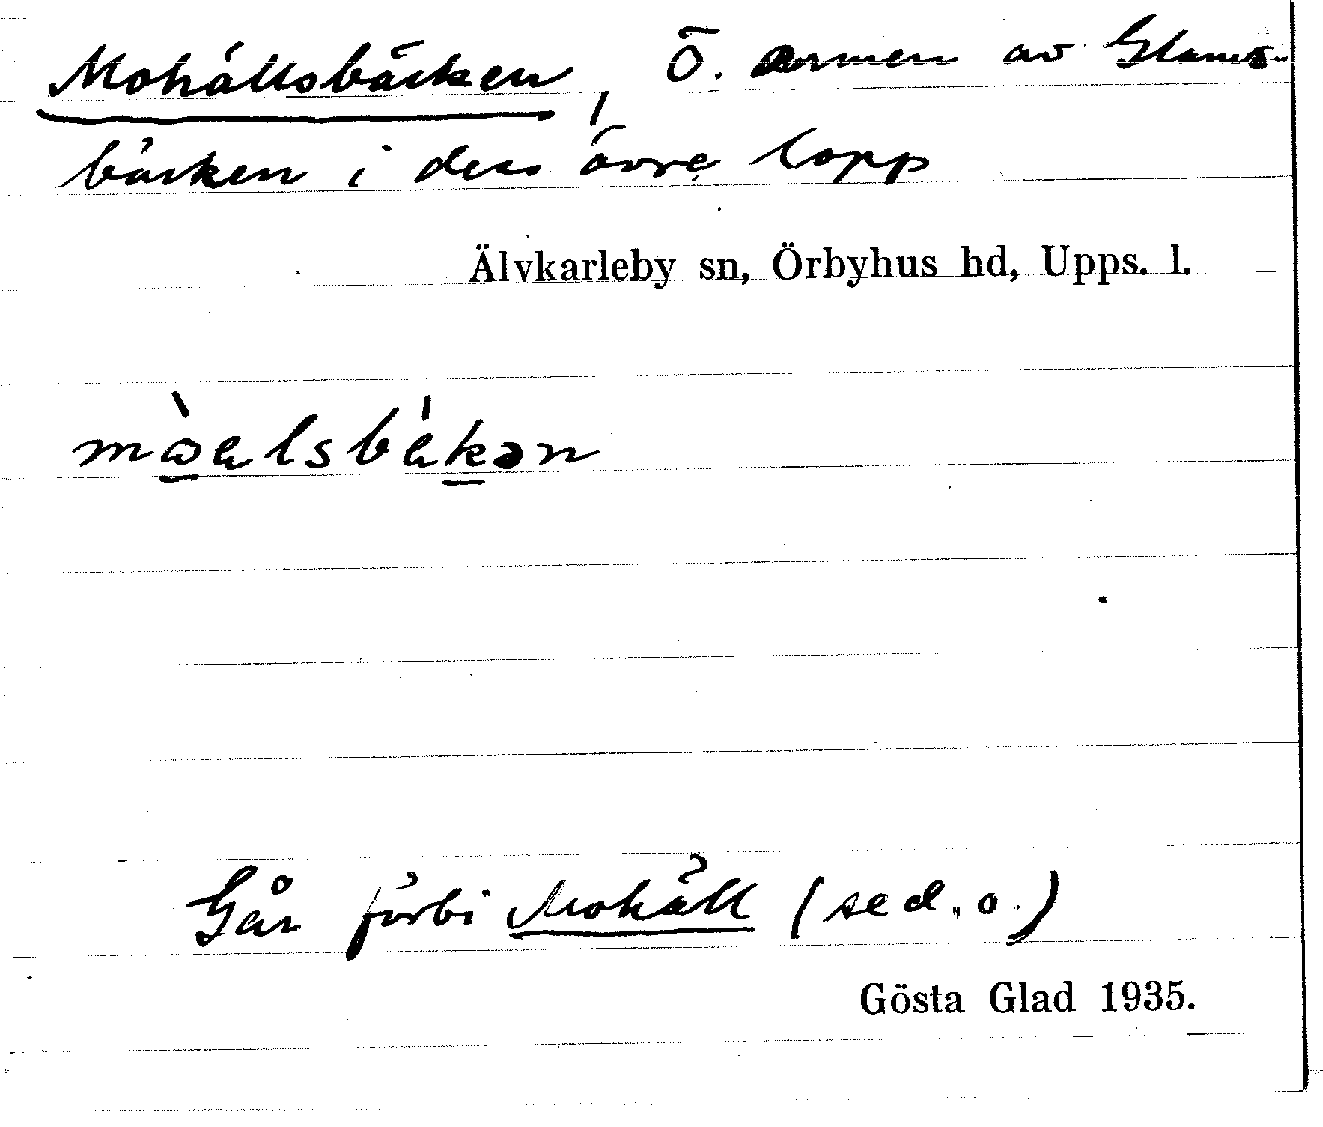 Mohällsbäcken, Ö. armen av Glams-
bäcken i dess övre lopp
Älvkarleby sn, Örbyhus hd, Upps. l.
Går förbi Mohäll (se d. o.)
Gösta Glad 1935.